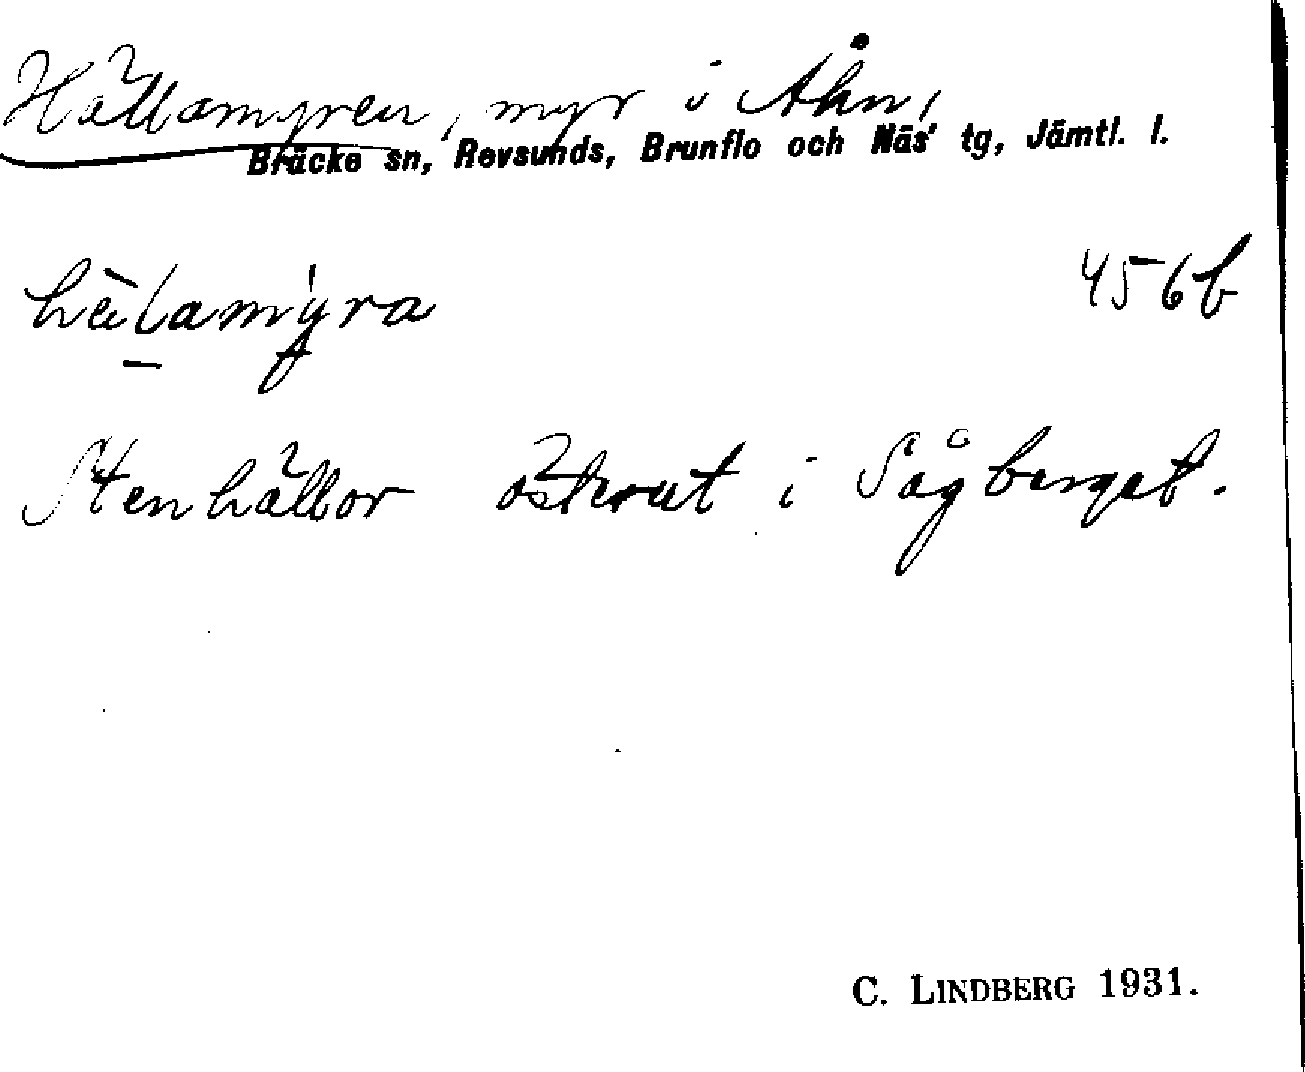 Hällamyren, myr i Åhn,
Bräcke sn, Revsunds, Brunflo och Näs' tg, Jämtl. l.
hälamyra 456b
Stenhällor österut i Sågberget.
C. LINDBERG 1931.